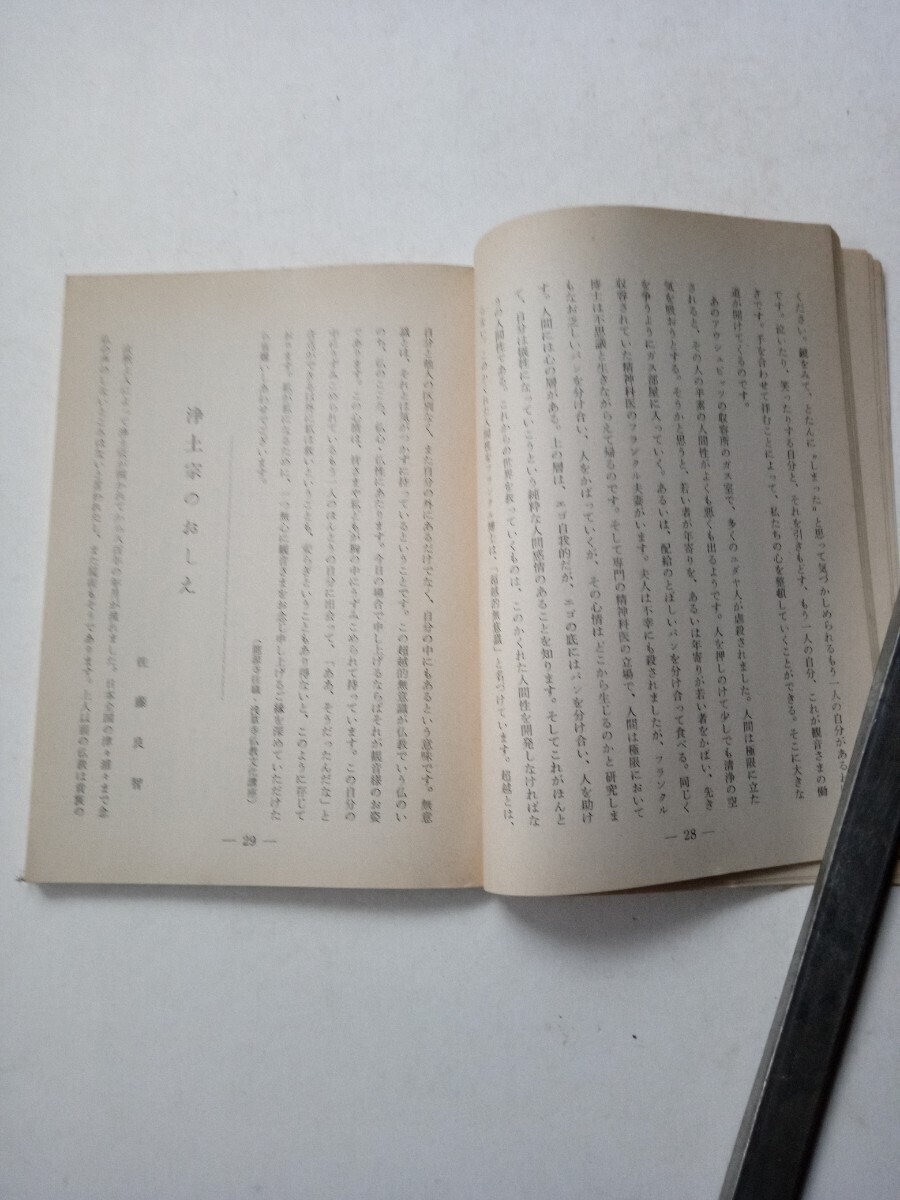 ください。鏡をみて、とたんに〝しまった〟と思って気づかしめられるもう一人の自分がある
です。泣いたり、笑ったりする自分と、それを引きもどす、もう一人の自分、これが観音さまの働
きです。手を合わせて拝むことによって、私たちの心を整頓していくことができる。そこに大きな
道が開けてくるのです。
あのアウシュビッツの収容所のガス室で、多くのユダヤ人が虐殺されました。人間は極限に立た
されると、その人の平素の人間性がよくも悪くも出るようです。人を押しのけて少しでも清浄の空
気を吸おうとする。そうかと思うと、若い者が年寄りを、あるいは年寄りが若い者をかばい、先き
を争うようにガス部屋に入っていく。あるいは、配給のとぼしいパンを分け合って食べる。同じく
収容されていた精神科医のフランクル夫妻がいます。夫人は不幸にも殺されましたが、フランクル
博士は不思議と生きながらえて帰るのです。そして専門の精神科医の立場で、人間は極限において
もなお乏しいパンを分け合い、人をかばっていくが、その心情はどこから生じるのかと研究しま
す。人間には心の層がある。上の層は、エゴ自我的だが、エゴの底にはパンを分け合い、人を助け
て、自分は犠牲になっていこうという純粋な人間感情のあることを知ります。そしてこれがほんと
うの人間性である。これからの世界を救っていくものは、このかくれた人間性を開発しなければな
らない。このかくれた人間性をフランクル博士は、「超越的無意識」と名づけています。超越とは、
— 28 —
自分と他人の区別なく、また自分の外にあるだけでなく、自分の中にもあるという意味です。無意
識とは、それとは気がつかずに持っているということです。この超越的無意識が仏教でいう仏のい
のち、仏のこころ、仏心・仏性にあたります。今日の場合で申し上げるならばそれが観音様のお姿
であります。この心情は、皆さまや私どもが胸の中にうずみこめられて持っています。この自分の
中にうずみこめられているもう一人のほんとうの自分に出会って、「ああ、そうだったんだな」と
合点ができる以外に私は救いということも、安らぎということもあり得ないと、このように存じて
おります。私が私になるために、一つ無心に観音さまをお念じ申し上げるご縁を深めていただけた
ら有難いしあわせでございます。
（龍源寺住職・浅草寺仏教文化講座）
浄土宗のおしえ
佐藤良智
宗祖上人によって浄土宗が開かれてから八百年の年月が流れました。日本全国の津々浦々まで念
仏の声のしないところはないと言われたし、また現在もそうであります。上人以前の仏教は貴族の
— 29 —